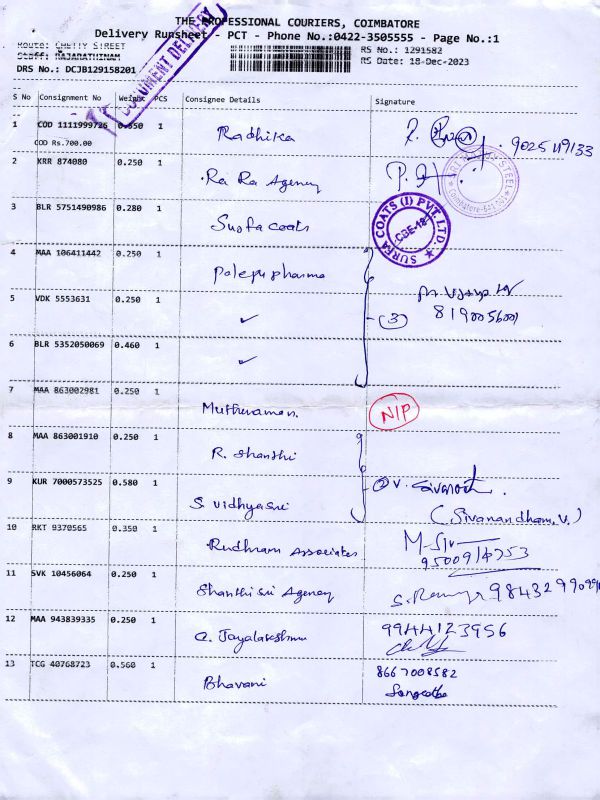 THE PROFESSIONAL COURIERS, COIMBATORE
Delivery Runsheet - PCT - Phone No.:0422-3505555 - Page No.:1
Route: CHETTY STREET RS No.: 1291582
Staff: RAJARATHINAM RS Date: 18-Dec-2023
DRS No.: DCJB129158201
DOCUMENT DELIVERY
S No Consignment No Weight PCS Consignee Details Signature
1 COD 1111999726 0.650 1 Radhika 9025119133
COD Rs.700.00
2 KRR 874080 0.250 1 Ra Ra Agency
STEEL
Coimbatore-641
3 BLR 5751490986 0.280 1 Surfa coats
SURFA COATS (I) PVT. LTD. ★ CBE-18
4 MAA 106411442 0.250 1 Palepu pharma
5 VDK 5553631 0.250 1 ✓ (3) 819005600
6 BLR 5352050069 0.460 1 ✓
7 MAA 863002981 0.250 1 Muthuraman. N/P
8 MAA 863001910 0.250 1 R. Shanthi
9 KUR 7000573525 0.580 1 S. Vidhyasri ② V.
(Sivanandham.V.)
10 RKT 9370565 0.350 1 Rudhram Associates
9500914753
11 SVK 10456064 0.250 1 Shanthi sri Agency
12 MAA 943839335 0.250 1 9944123956
13 TCG 40768723 0.560 1 Bhavani 8667008582
Sangeetha